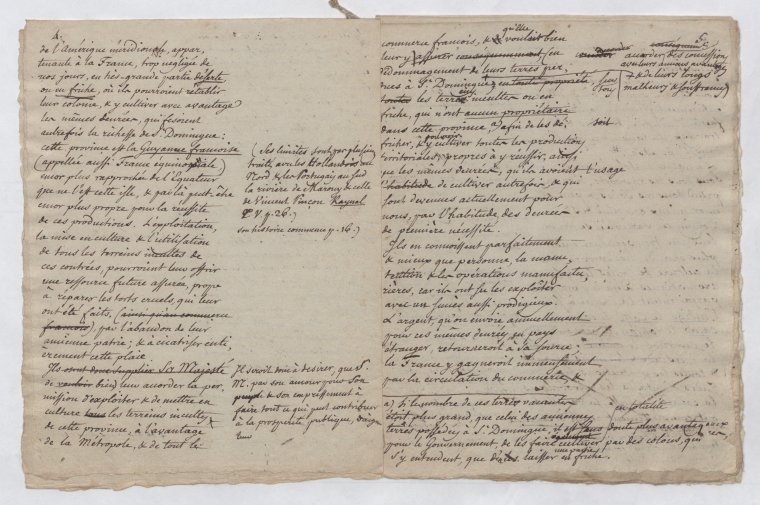 4.
de l'Amérique méridionale, appar,
tenante à la France, trop négligée de
nos jours, en très grande partie deserte,
ou en friche, où ils pourroient rétablir
leur colonie, & y cultiver avec avantage
les mêmes denrées, qui fesoient
autrefois la richesse de S. Domingue:
cette province est la Guyanne françoise
(appellée aussi France équinoxiale)
encor plus rapprochée de l'Equateur
que ne l'est cette isle, & par là peut-être
encor plus propre pour la réussite
de ces productions. L'exploitation,
la mise en culture & l'utilisation
de tous les terreins incultes de
ces contrées, pourroient leur offrir
une ressource future assurée, propre
à réparer les torts cruels, qui leur
ont été faits, (ainsi qu'au commerce
francois), par l'abandon de leur
ancienne patrie; & à cicatriser enti,
èrement cette plaie.
Ils sont donc supplier Sa Majesté
de vouloir bien leur accorder la per,
mission d'exploiter & de mettre en
culture tous les terreins incultes
de cette province, à l'avantage
de la Métropole, & de tout le
(Ses limites sont par plusieurs
traités avec les Hollandois au
Nord & les Portugais au Sud
la rivière de Marony & celle
de Vincent Pinçon Raynal
T. V. p. 26.)
son histoire commence p. 16.)
Il seroit donc à desirer, que S.
M. par son amour pour Son
peuple & son empressement à
faire tout ce qui peut contribuer
à la prosperité publique, daigne
leur
5.
commerce francois, & qu'Elle voulait bien
leur y assurer conséquemment en
dédommagement de leurs terres per,
dues à S. Domingue en toute propriété
toutes les terres incultes ou en
friche, qui n'ont aucun propriétaire
dans cette province, afin de les dé,
fricher, & y cultiver toutes les productions
territoriales, propres à y reussir, ainsi
que les mêmes denrées, qu'ils avoient l'usage
l'habitude de cultiver autrefois, & qui
sont devenues actuellement pour
nous, par l'habitude, des denrées
de première necessité.
Ils en connoissent parfaitement
& mieux que personne, la
& les opérations manufactu,
rières, car ils ont su les exploiter
avec un succès aussi prodigieux.
L'argent, qu'on envoie annuellement
pour ces mêmes denrées, en pays
étranger, retourneroit à sa source.
la France y gagneroit immensément
par la circulation du commerce, &
a) Si le nombre de ces terres vacantes
étoit plus grand, que celui des anciennes
terres possédées à S. Domingue, il est sans doute plus avantageux
pour le Gouvernement, de les faire cultiver en totalité par des colons, qui
s'y entendent, que d'en laisser une partie en friche.
accorder des concessions,
& de leurs longs
malheurs & souffrances)
soit